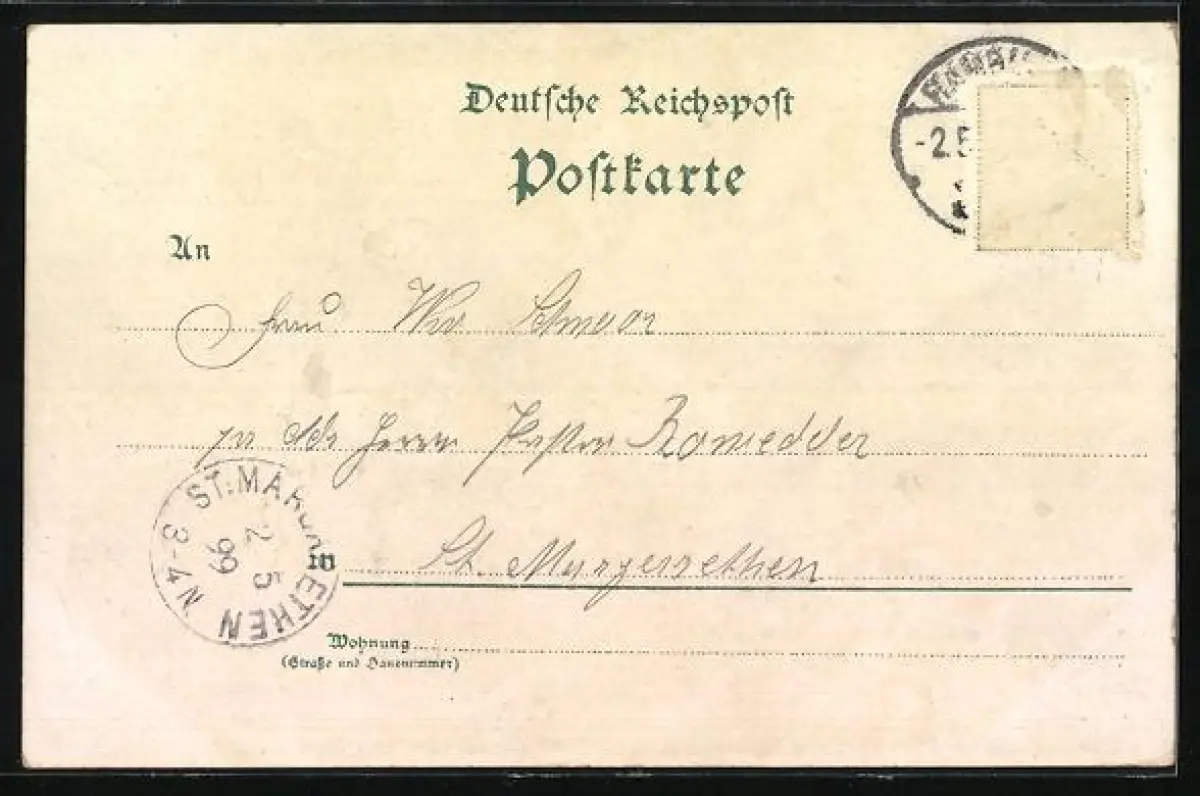 Deutsche Reichspost
Postkarte
HAMBU
-2.5
An
Frau Ww Schmoor
Herrn Pastor Ramedder
ST. MARGARETHEN
2 5
99
3-4 N
in
St. Margarethen
Wohnung
(Straße und Hausnummer)